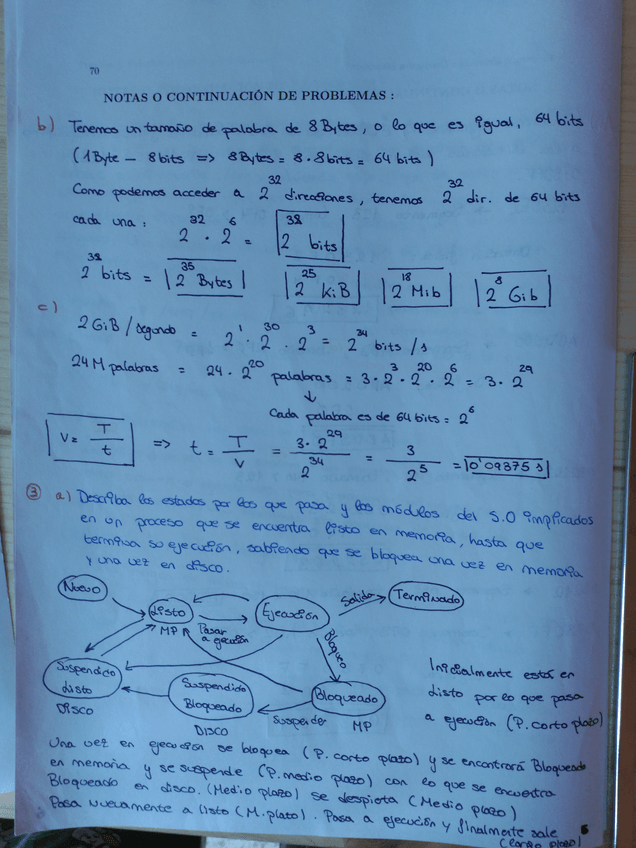 70
NOTAS O CONTINUACIÓN DE PROBLEMAS :
b) Tenemos un tamaño de palabra de 8 Bytes, o lo que es igual, 64 bits
(1 Byte - 8 bits => 8 Bytes = 8 · 8 bits = 64 bits)
Como podemos acceder a 2^32 direcciones, tenemos 2^32 dir. de 64 bits
cada una : 2^32 · 2^6 = 2^38 bits
2^38 bits = 2^35 Bytes 2^25 KiB 2^18 Mib 2^8 Gib
c)
2 GiB / segundo = 2^1 · 2^30 · 2^3 = 2^34 bits / s
24 M palabras = 24 · 2^20 palabras = 3 · 2^3 · 2^20 · 2^6 = 3 · 2^29
↓
Cada palabra es de 64 bits = 2^6
V = T / t => t = T / V = 3 · 2^29 / 2^34 = 3 / 2^5 = 0'09375 s
③ a) Describa los estados por los que pasa y los módulos del S.O implicados
en un proceso que se encuentra listo en memoria, hasta que
termina su ejecución, sabiendo que se bloquea una vez en memoria
y una vez en disco.
Nuevo
Listo
MP
Pasar
a ejecución
Ejecución
Salida
Terminado
Bloqueo
Suspendido
Listo
DISCO
Suspendido
Bloqueado
DISCO
Suspender
Bloqueado
MP
Inicialmente está en
listo por lo que pasa
a ejecución (P. corto plazo)
Una vez en ejecución se bloquea (P. corto plazo) y se encontrará Bloqueado
en memoria y se suspende (P. medio plazo) con lo que se encuentra
Bloqueado en disco. (Medio plazo) se despierta (Medio plazo)
Pasa nuevamente a listo (M. plazo). Pasa a ejecución y finalmente sale
(Largo plazo)